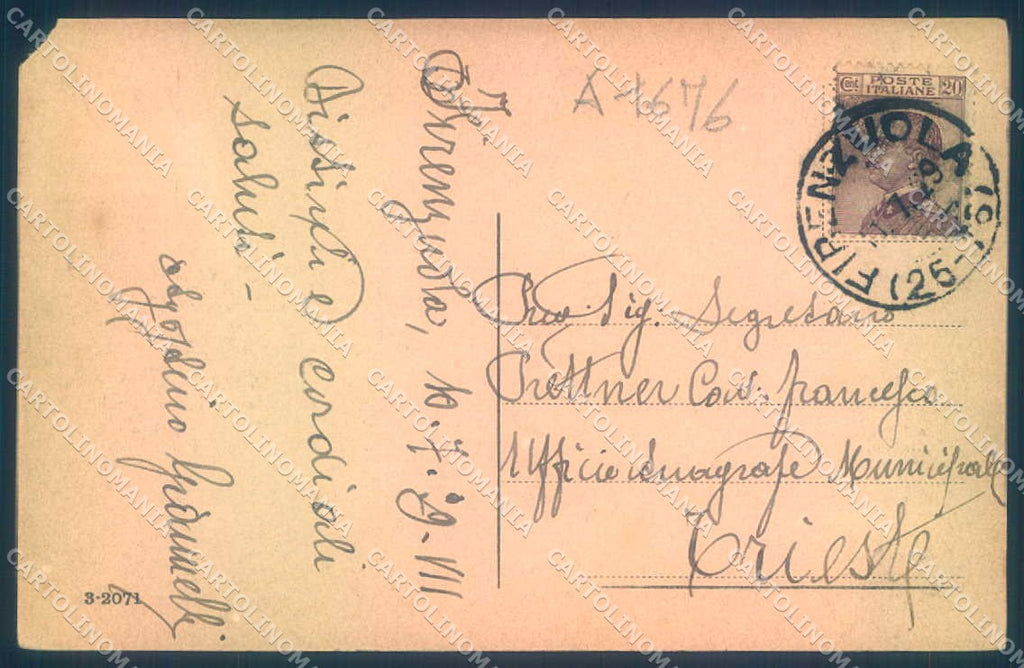 A 1676
POSTE
ITALIANE
Cent 20
FIRENZUOLA (25-
Firenzuola, 10.7.29-VII
Distinti e cordiali
saluti -
Preg Sig. Segretario
Prettner Cav. Francesco
Ufficio Anagrafe Municipale
Trieste
3-2071
CARTOLINOMANIA